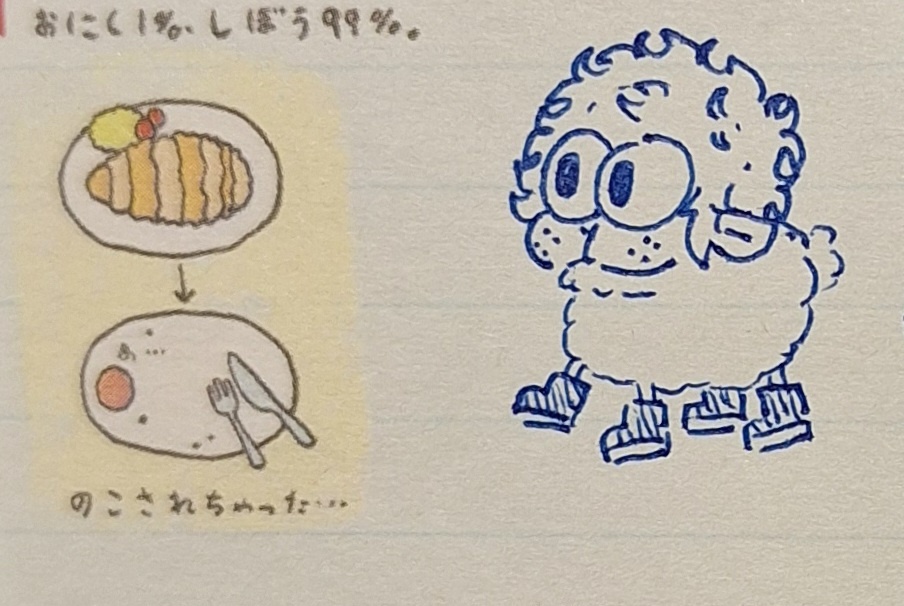 おにく1%、しぼう99%。
あ…
のこされちゃった…